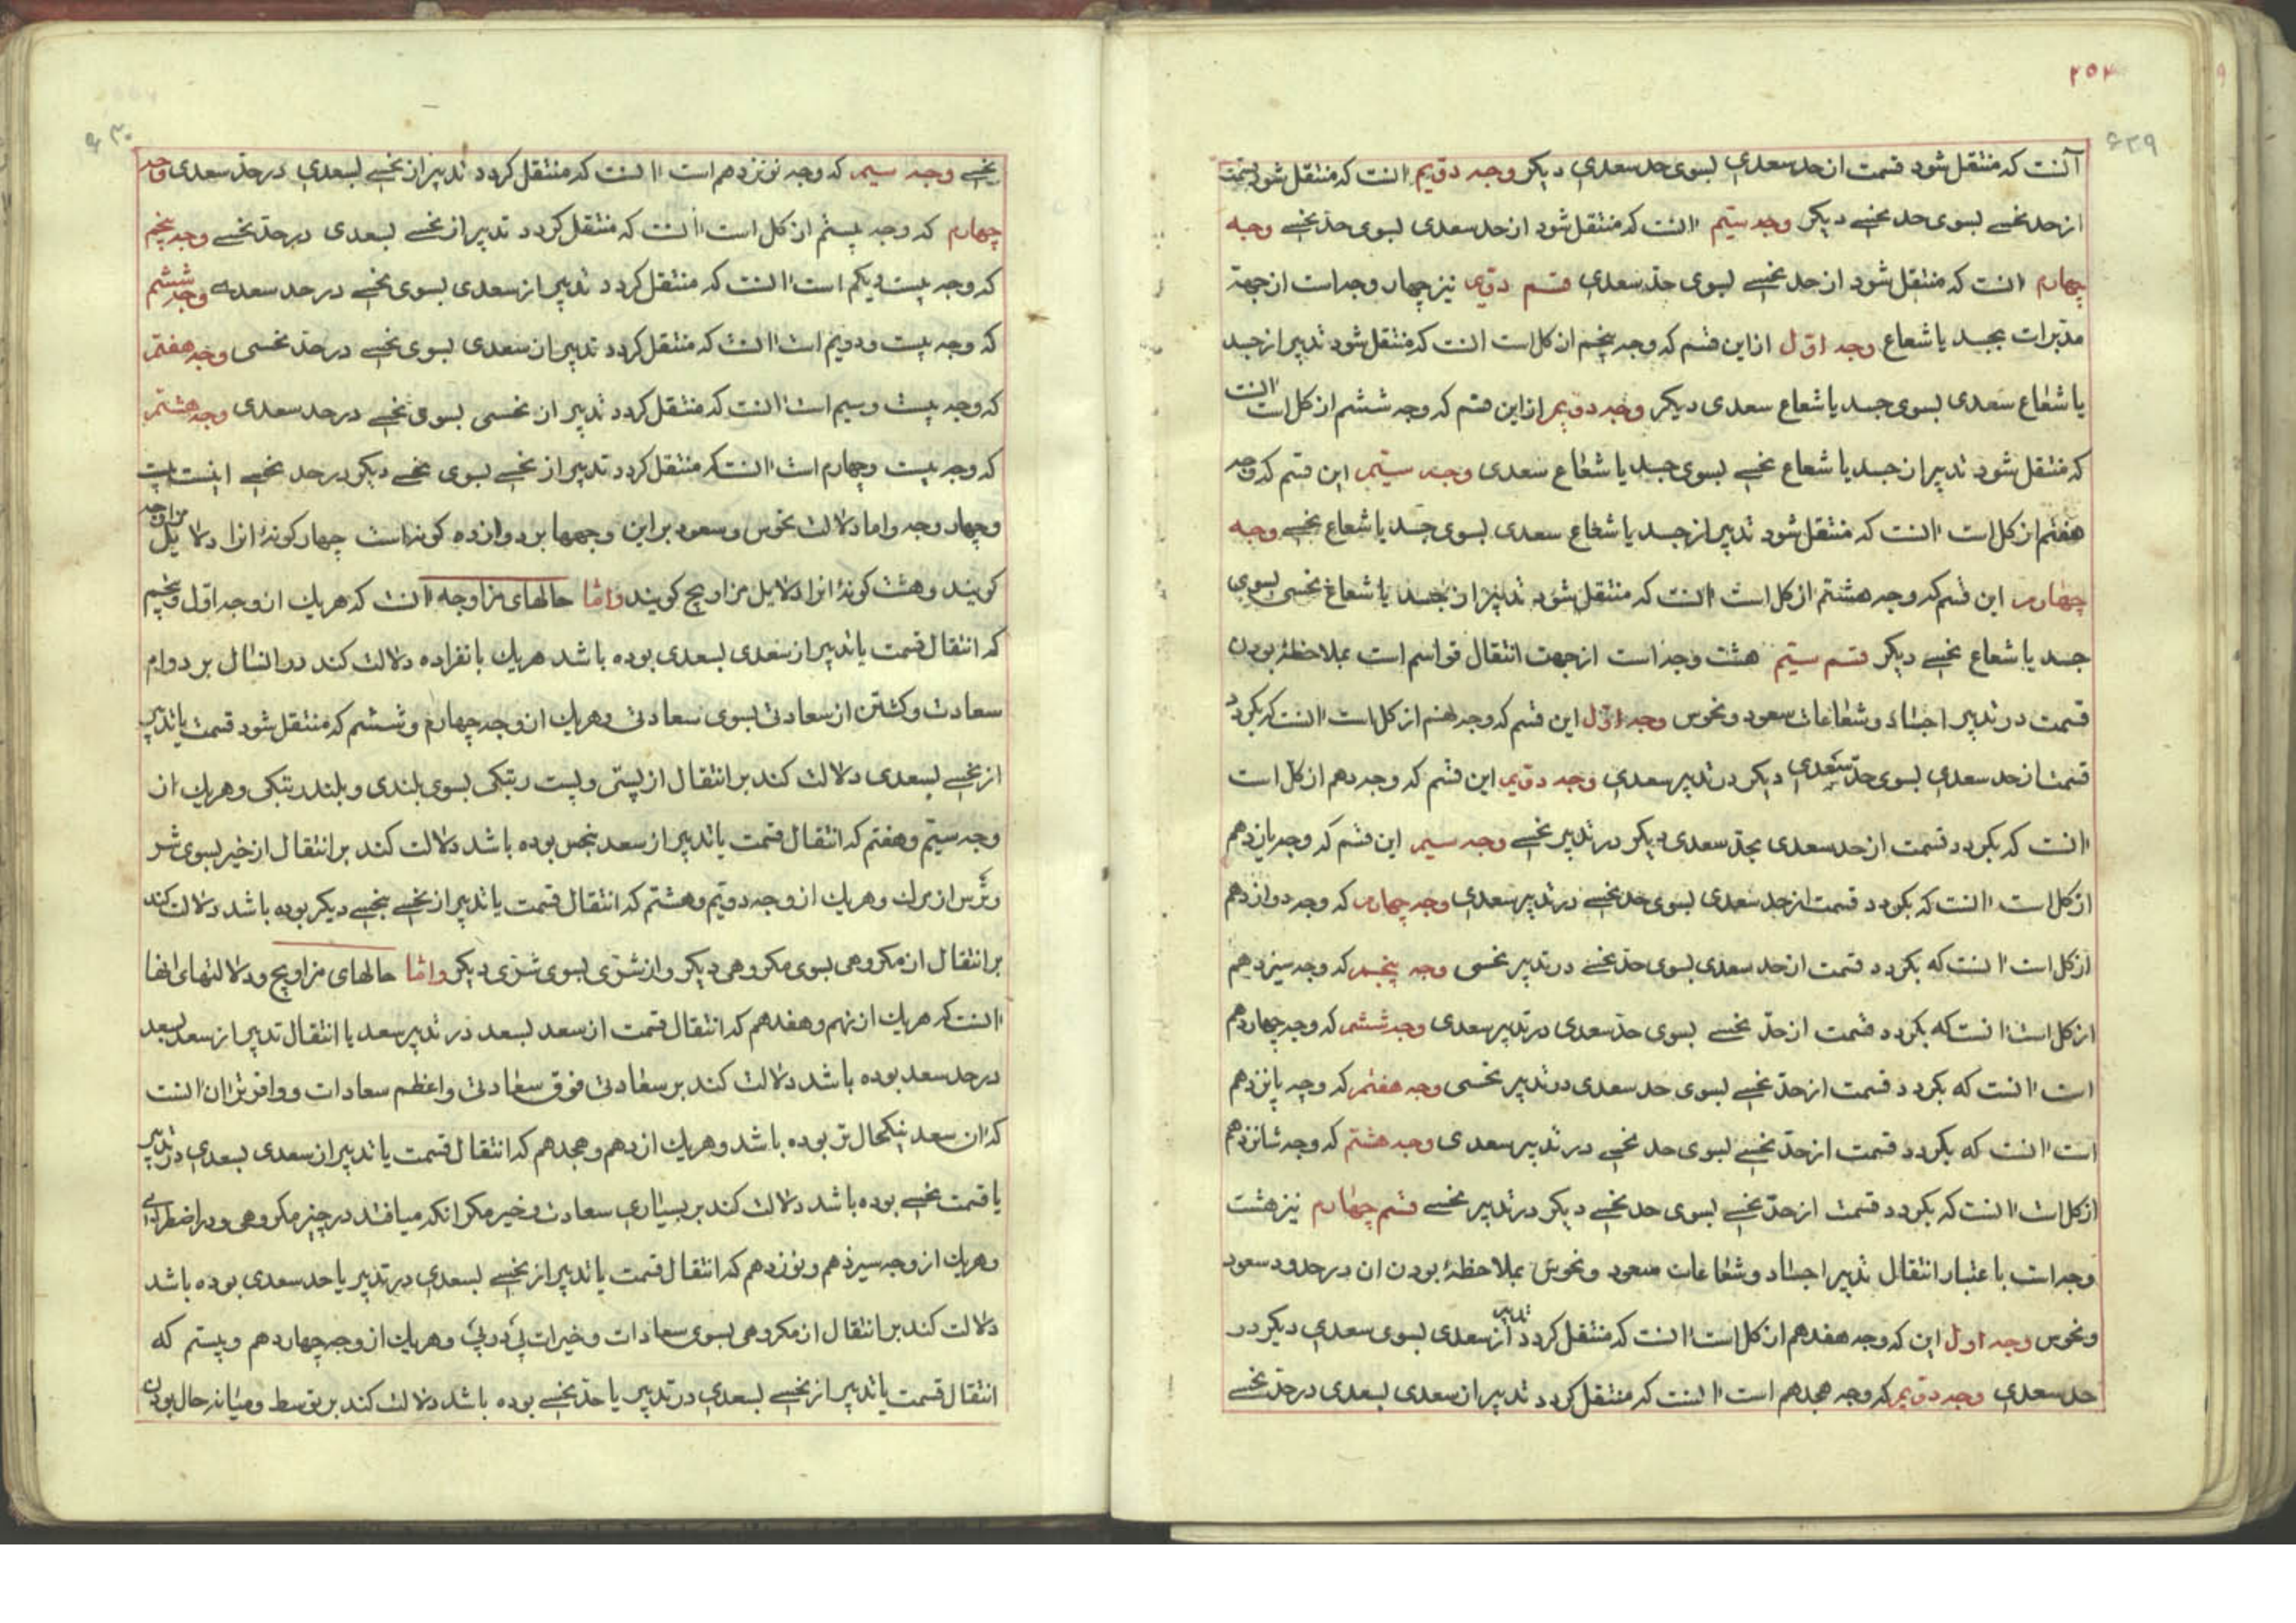 ۲۵۴
۶۳۹
آنست که منتقل شود قسمت از حد سعدی بسوی حد سعدی دیکر وجه دویم انست که منتقل شود قسمت
از حد نحسے بسوی حد نحسے دیکر وجه سیّم انست که منتقل شود از حد سعدی بسوی حد نحسے وجه
چهارم انست که منتقل شود از حد نحسے بسوی حد سعدی قسم دویم نیز چهار وجه است از جهة
مدبرات بجسد یا شعاع وجه اوّل از این قسم که وجه پنجم از کل است انست که منتقل شود تدبیر از جسد
یا شعاع سعدی بسوی جسد یا شعاع سعدی دیکر وجه دویم از این قسم که وجه ششم از کل است انست
که منتقل شود تدبیر از جسد یا شعاع نحسے بسوی جسد یا شعاع سعدی وجه سیّم این قسم که وجه
هفتم از کل است انست که منتقل شود تدبیر از جسد یا شعاع سعدی بسوی جسد یا شعاع نحسے وجه
چهارم این قسم که وجه هشتم از کل است انست که منتقل شود تدبیر از جسد یا شعاع نحسی بسوی
جسد یا شعاع نحسے دیکر قسم سیّم هشت وجه است از جهت انتقال قواسم است بملاحظهٔ بودن
قسمت در تدبیر اجساد و شعاعات سعود و نحوس وجه اوّل این قسم که وجه نهم از کل است انست که بکردد
قسمت از حد سعدی بسوی حدّ سعدی دیکر در تدبیر سعدی وجه دویم این قسم که وجه دهم از کل است
انست که بکردد قسمت از حد سعدی بحدّ سعدی دیکر در تدبیر نحسے وجه سیم این قسم که وجه یازدهم
از کل است انست که بکردد قسمت از حد سعدی بسوی حد نحسے در تدبیر سعدی وجه چهارم که وجه دوازدهم
از کل است انست که بکردد قسمت از حد سعدی بسوی حدّ نحسے در تدبیر نحسی وجه پنجم که وجه سیزدهم
از کل است انست که بکردد قسمت از حدّ نحسے بسوی حدّ سعدی در تدبیر سعدی وجه ششم که وجه چهاردهم
است انست که بکردد قسمت از حدّ نحسے بسوی حد سعدی در تدبیر نحسی وجه هفتم که وجه پانزدهم
است انست که بکردد قسمت از حدّ نحسے بسوی حد نحسے در تدبیر سعدی وجه هشتم که وجه شانزدهم
از کل است انست که بکردد قسمت از حدّ نحسے بسوی حد نحسے دیکر در تدبیر نحسے قسم چهارم نیز هشت
وجه است باعتبار انتقال تدبیر اجساد و شعاعات سعود و نحوس بملاحظهٔ بودن ان در حدود سعود
و نحوس وجه اول این که وجه هفدهم از کل است انست که منتقل کردد تدبیر از سعدی بسوی سعدی دیکر در
حد سعدی وجه دویم که وجه هجدهم است انست که منتقل کردد تدبیر از سعدی بسعدی در حدّ نحسے
۶۳۰
نحسے وجه سیم که وجه نوزدهم است انست که منتقل کردد تدبیر از نحسے بسعدی در حدّ سعدی وجه
چهارم که وجه بیستم از کل است انست که منتقل کردد تدبیر از نحسے بسعدی در حدّ نحسے وجه پنجم
که وجه بیست و یکم است انست که منتقل کردد تدبیر از سعدی بسوی نحسے در حد سعدی وجه ششم
که وجه بیست و دویم است انست که منتقل کردد تدبیر از سعدی بسوی نحسے در حدّ نحسی وجه هفتم
که وجه بیست و سیم است انست که منتقل کردد تدبیر از نحسی بسوی نحسے در حد سعدی وجه هشتم
که وجه بیست و چهارم است انست که منتقل کردد تدبیر از نحسے بسوی نحسے دیکر در حد نحسے اینست بیست
و چهار وجه و اما دلالت نحوس و سعود بر این وجهها بر دوازده کونه است چهار کونهٔ انرا دلایل مزاوجه
کویند و هشت کونهٔ انرا دلایل مزاویج کویند و امّا حالهای مزاوجه انست که هریك از وجه اوّل و پنجم
که انتقال قسمت یا تدبیر از سعدی بسعدی بوده باشد هریك بانفراده دلالت کند در انسال بر دوام
سعادت و کشتن از سعادتی بسوی سعادتی و هریك از وجه چهارم و ششم که منتقل شود قسمت یا تدبیر
از نحسے بسعدی دلالت کند بر انتقال از پستی و پست رتبکی بسوی بلندی و بلند رتبکی و هریك از
وجه سیّم و هفتم که انتقال قسمت یا تدبیر از سعد بنحس بوده باشد دلالت کند بر انتقال از خیر بسوی شر
و ترس از مرك و هریك از وجه دویم و هشتم که انتقال قسمت یا تدبیر از نحسے بنحسے دیکر بوده باشد دلالت کند
بر انتقال از مکروهی بسوی مکروهی دیکر و از شرّی بسوی شرّی دیکر و امّا حالهای مزاویج و دلالتهای انها
انست که هریك از نهم و هفدهم که انتقال قسمت از سعد بسعد در تدبیر سعد یا انتقال تدبیر از سعد بسعد
در حد سعد بوده باشد دلالت کند بر سعادتی فوق سعادتی و اعظم سعادات و وافرتر ان انست
که ان سعد نیکحال تر بوده باشد و هریك از دهم و هجدهم که انتقال قسمت یا تدبیر از سعدی بسعدی در تدبیر
یا قسمت نحسے بوده باشد دلالت کند بر بسیاری سعادت و خیر مکر انکه میافتد در چیز مکروهی و در اضطرابی
و هریك از وجه سیزدهم و نوزدهم که انتقال قسمت یا تدبیر از نحسے بسعدی در تدبیر یا حد سعدی بوده باشد
دلالت کند بر انتقال از مکروهی بسوی سعادات و خیرات پی در پی و هریك از وجه چهاردهم و بیستم که
انتقال قسمت یا تدبیر از نحسے بسعدی در تدبیر یا حدّ نحسے بوده باشد دلالت کند بر توسط و میانه حال بودن